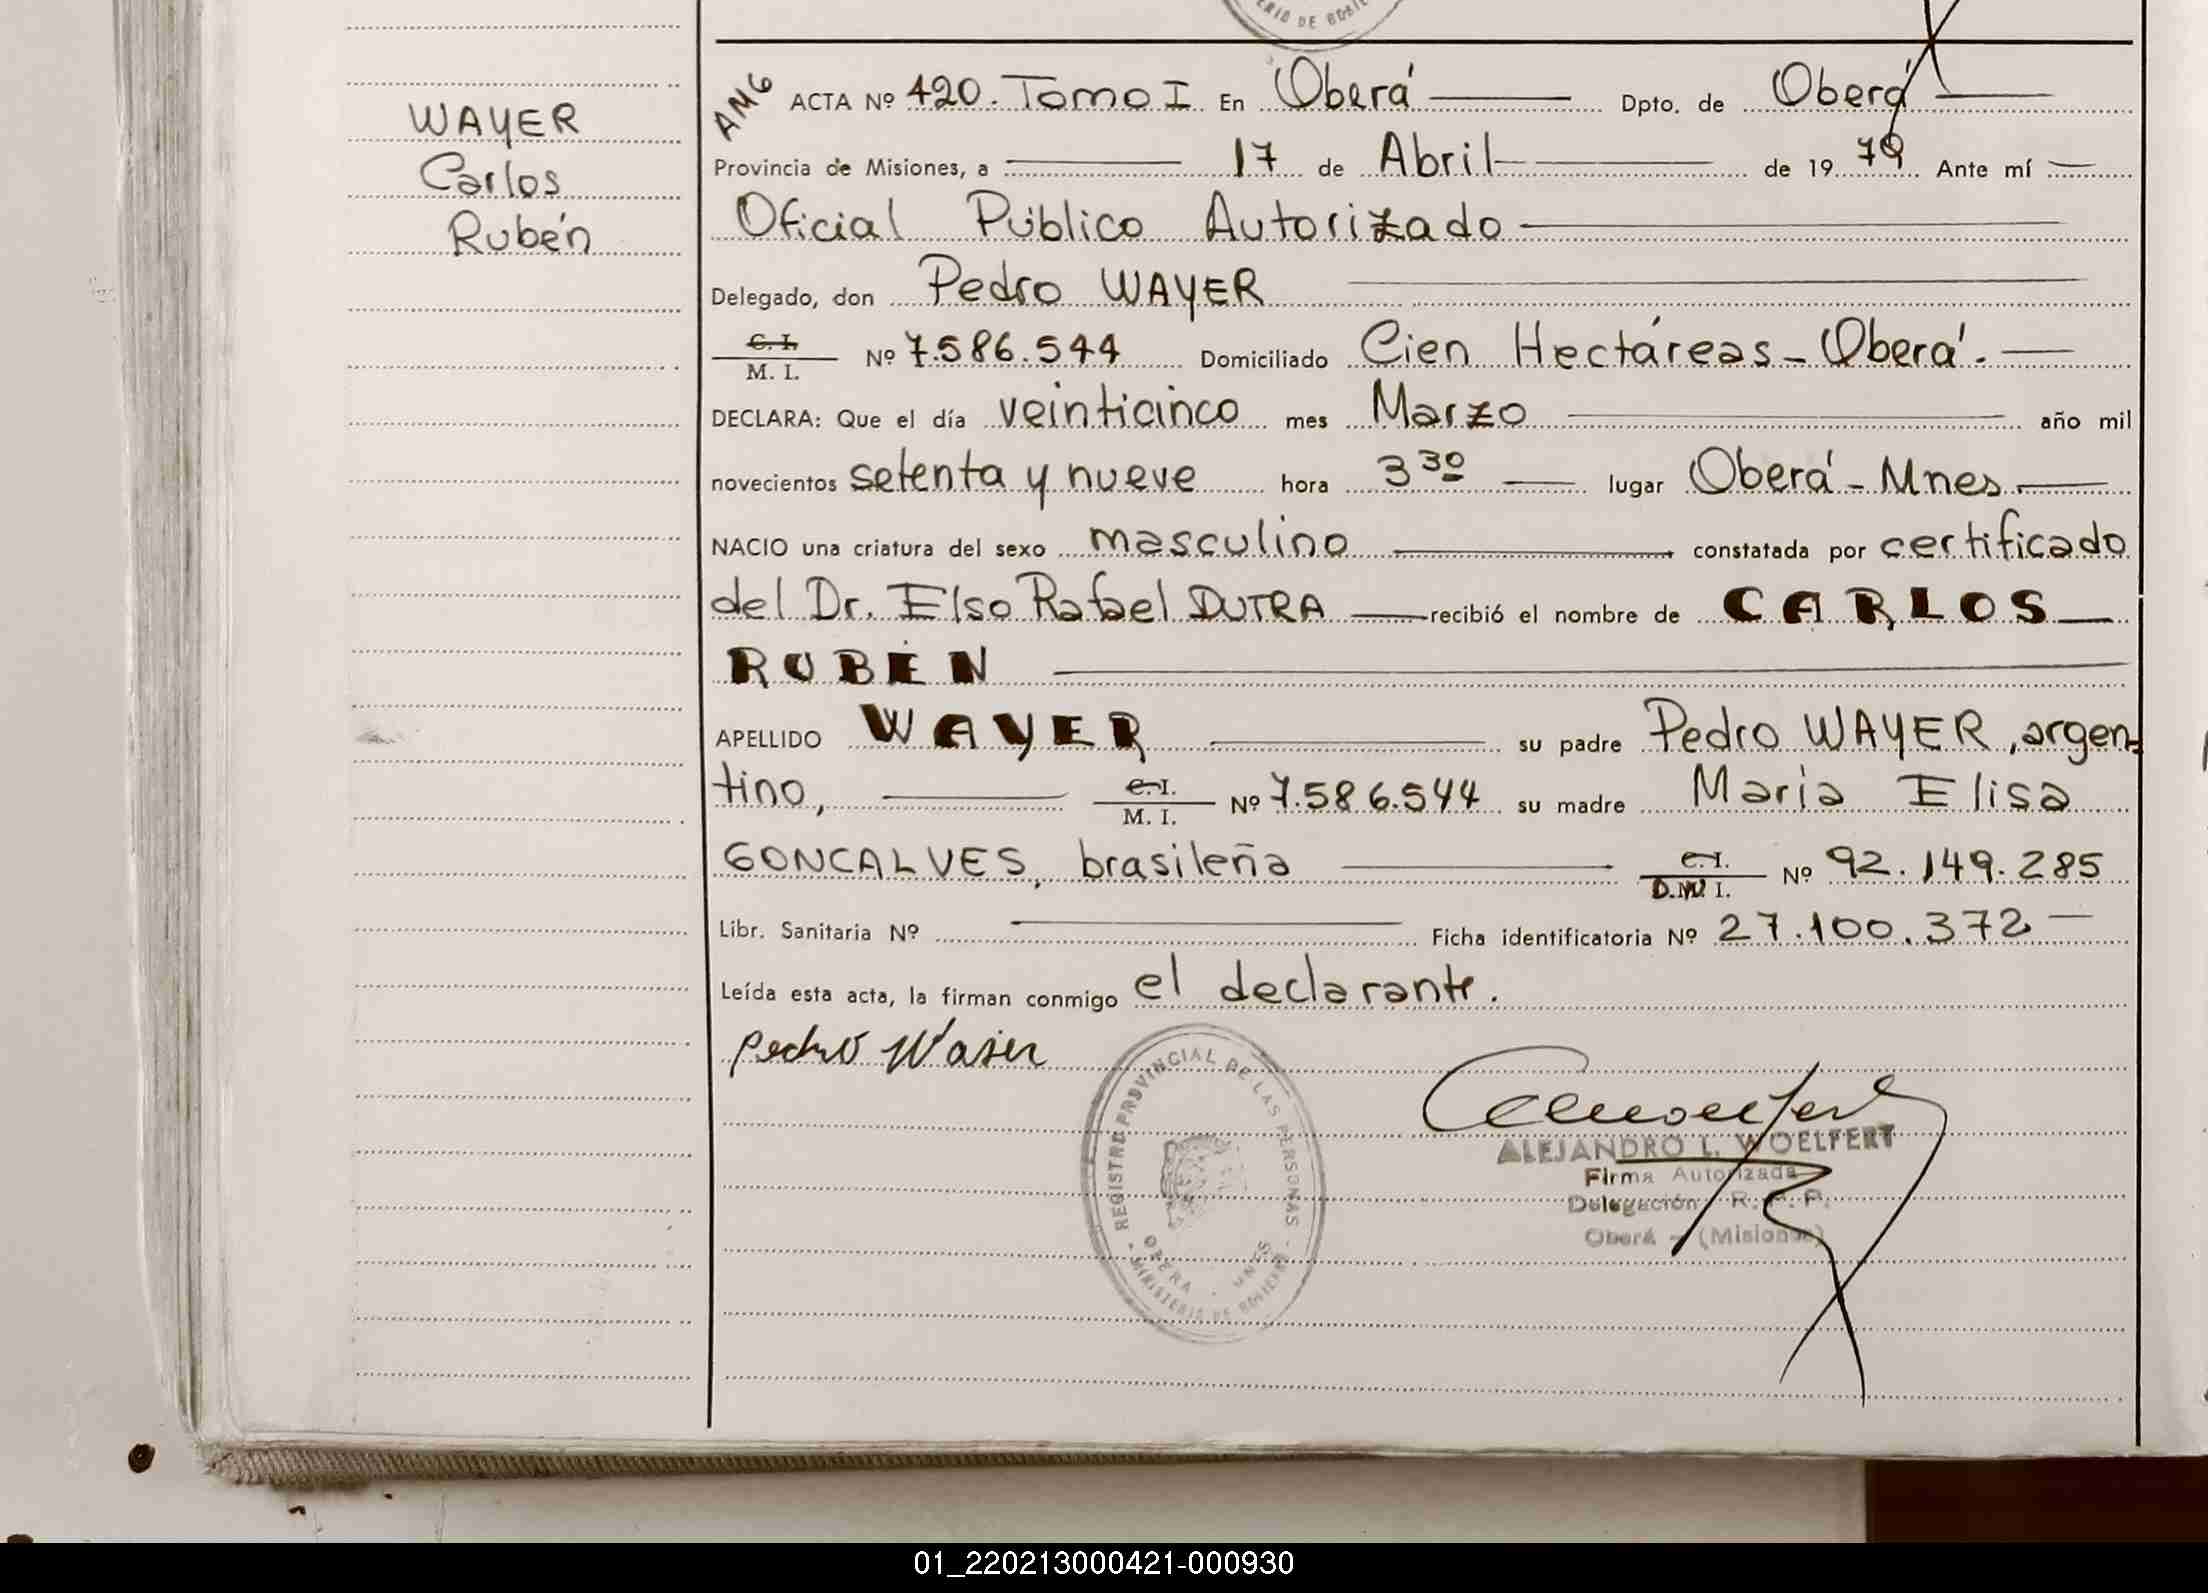 ERIO DE GOBIE
WAYER
Carlos
Rubén
AMG ACTA Nº 420. Tomo I En Oberá Dpto. de Oberá
Provincia de Misiones, a 17 de Abril de 1979 Ante mí
Oficial Público Autorizado
Delegado, don Pedro WAYER
C. I. / M. I. Nº 7.586.544 Domiciliado Cien Hectáreas - Oberá.
DECLARA: Que el día veinticinco mes Marzo año mil
novecientos setenta y nueve hora 3 30 lugar Oberá - Mnes.
NACIO una criatura del sexo masculino constatada por certificado
del Dr. Elso Rafael DUTRA recibió el nombre de CARLOS
RUBÉN
APELLIDO WAYER su padre Pedro WAYER, argen-
tino, C. I. / M. I. Nº 7.586.544 su madre Maria Elisa
GONCALVES, brasileña C. I. / D.N.I. Nº 92.149.285
Libr. Sanitaria Nº Ficha identificatoria Nº 27.100.372
Leída esta acta, la firman conmigo el declarante.
Pedro Waier
REGISTRO PROVINCIAL DE LAS PERSONAS
OBERA - MNES.
MINISTERIO DE GOBIERNO
ALEJANDRO L. WOELFERT
Firma Autorizada
Delegación R. P. P.
Oberá - (Misiones)
01_220213000421-000930